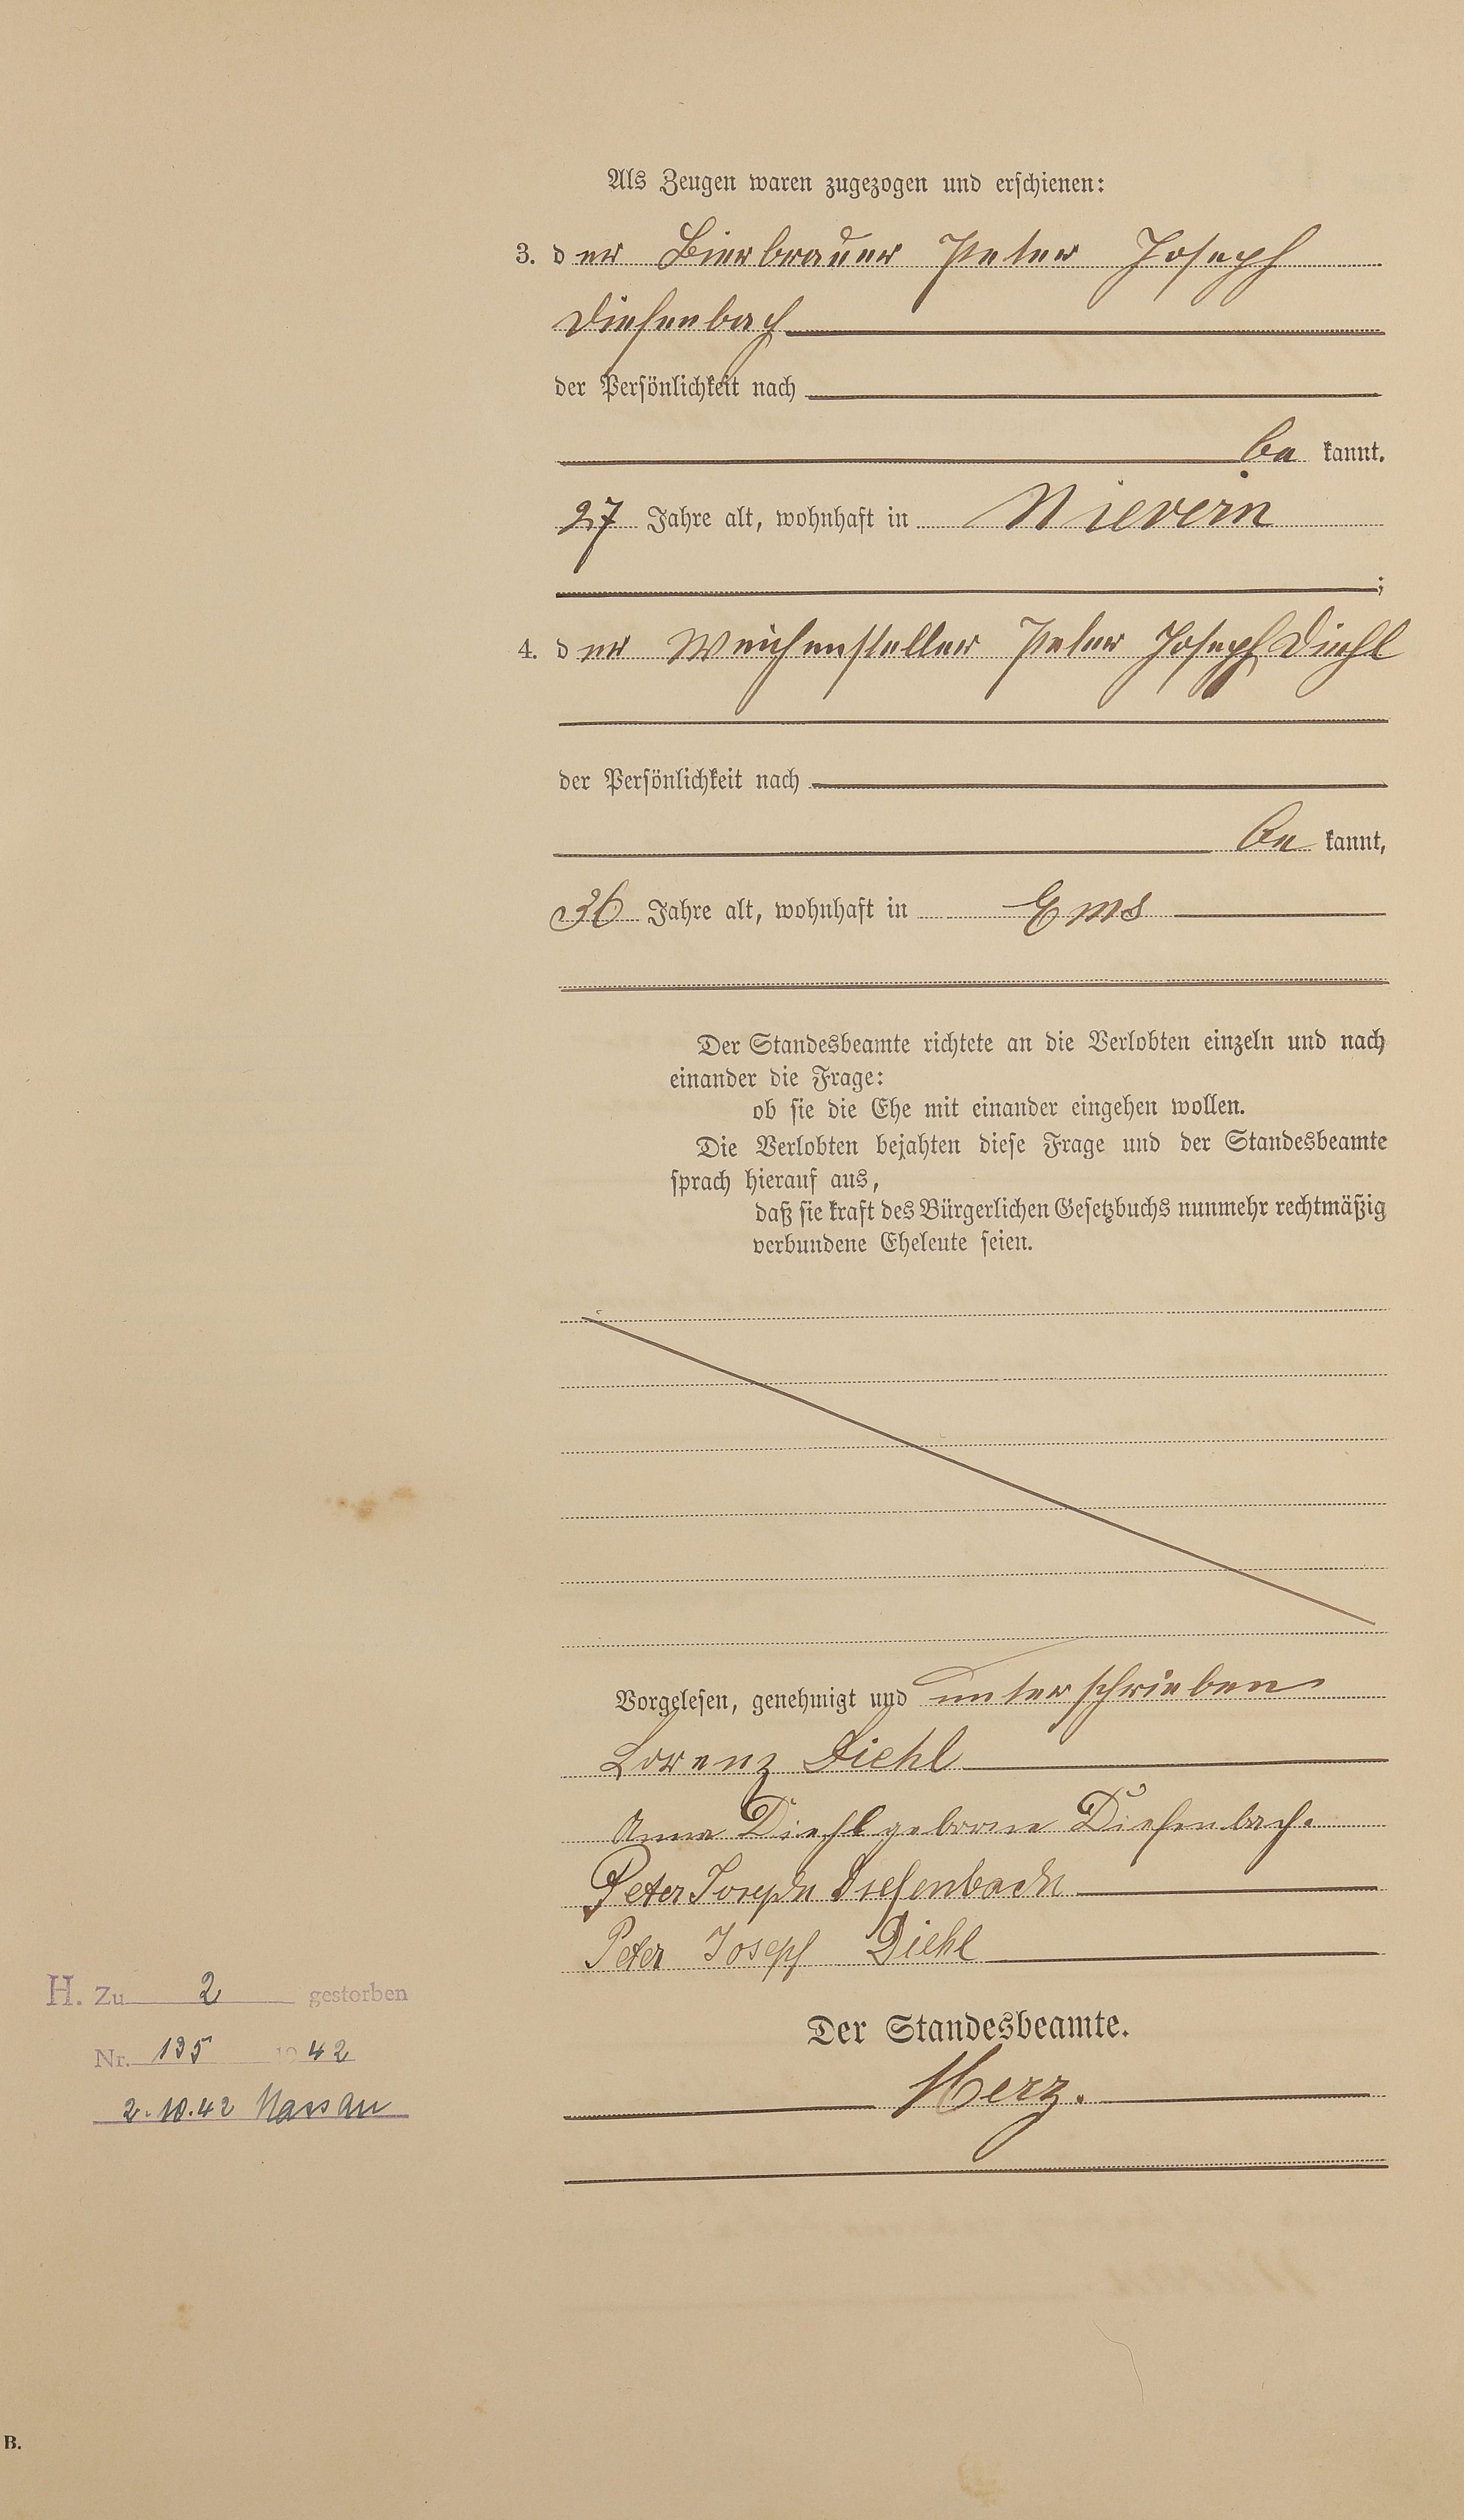 Als Zeugen waren zugezogen und erschienen:
3. der Bierbrauer Peter Joseph
Diefenbach
der Persönlichkeit nach
be kannt.
27 Jahre alt, wohnhaft in Nievern
;
4. der Weichensteller Peter Joseph Diehl
der Persönlichkeit nach
be kannt,
36 Jahre alt, wohnhaft in Ems
Der Standesbeamte richtete an die Verlobten einzeln und nach
einander die Frage:
ob sie die Ehe mit einander eingehen wollen.
Die Verlobten bejahten diese Frage und der Standesbeamte
sprach hierauf aus,
daß sie kraft des Bürgerlichen Gesetzbuchs nunmehr rechtmäßig
verbundene Eheleute seien.
Vorgelesen, genehmigt und unterschrieben
Lorenz Diehl
Anna Diehl geborne Diefenbach.
Peter Joseph Diefenbach
Peter Joseph Diehl
Der Standesbeamte.
Merz.
H. Zu 2 gestorben
Nr. 135 1942
2.10.42 Nassau
B.